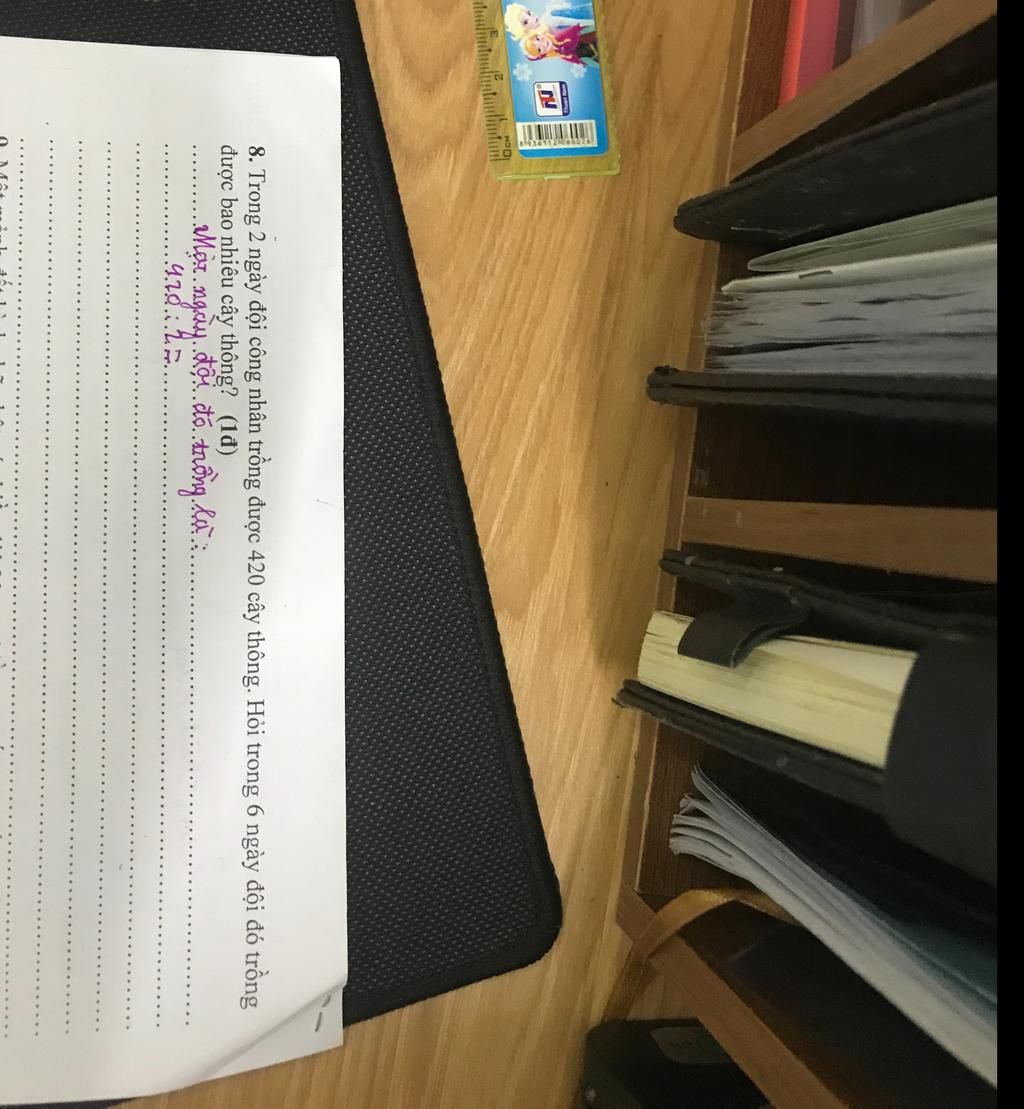 8. Trong 2 ngày đội công nhân trồng được 420 cây thông. Hỏi trong 6 ngày đội đó trồng
được bao nhiêu cây thông? (1đ)
Một ngày đội đó trồng là:
420 : 2 =
3 2 1 0 CM
Thuận Nam
8 936112 060026